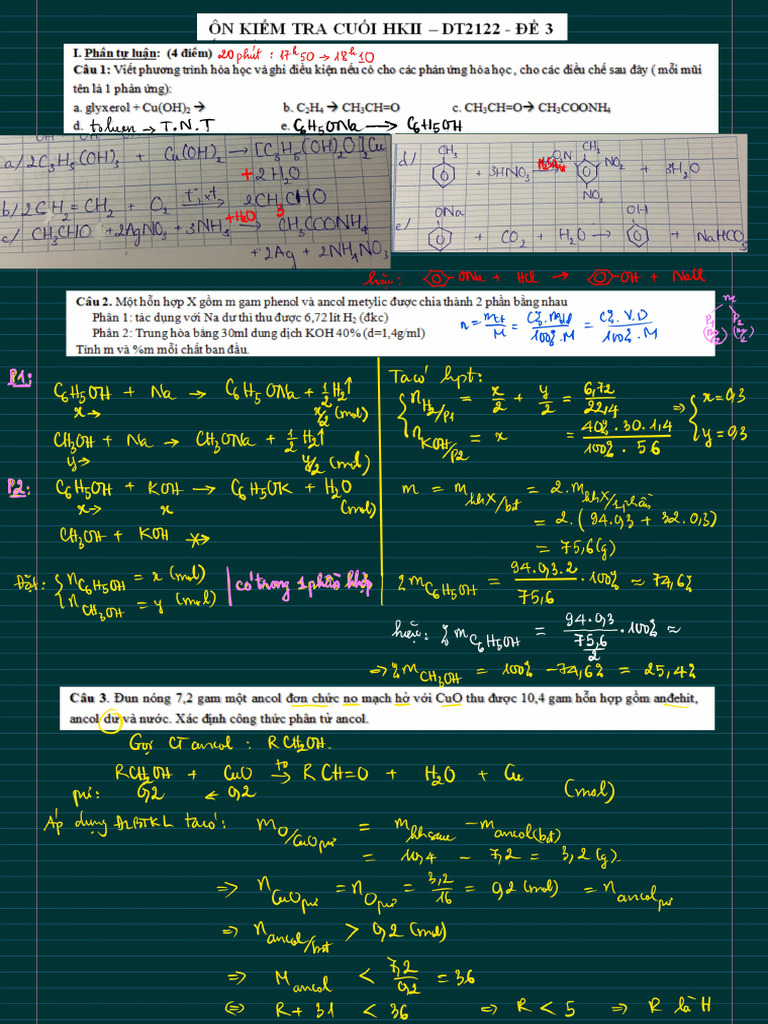 ÔN KIỂM TRA CUỐI HKII – DT2122 - ĐỀ 3
I. Phần tự luận: (4 điểm) 20 phút : 17h50 → 18h10
Câu 1: Viết phương trình hóa học và ghi điều kiện nếu có cho các phản ứng hóa học, cho các điều chế sau đây ( mỗi mũi
tên là 1 phản ứng):
a. glyxerol + Cu(OH)₂ → b. C₂H₄ → CH₃CH=O c. CH₃CH=O → CH₃COONH₄
d. toluen → T.N.T e. C₆H₅ONa → C₆H₅OH
a/ 2C₃H₅(OH)₃ + Cu(OH)₂ → [C₃H₅(OH)₂O]₂Cu
+ 2H₂O
b/ 2CH₂=CH₂ + O₂ —t°, xt→ 2CH₃CHO
c/ CH₃CHO + 2AgNO₃ + 3NH₃ —+H₂O→ CH₃COONH₄
+ 2Ag + 2NH₄NO₃
d/ CH₃ + 3HNO₃ → O₂N CH₃ NO₂ NO₂ + 3H₂O
e/ ONa + CO₂ + H₂O → OH + NaHCO₃
hoặc: ONa + HCl → OH + NaCl
Câu 2. Một hỗn hợp X gồm m gam phenol và ancol metylic được chia thành 2 phần bằng nhau
Phần 1: tác dụng với Na dư thì thu được 6,72 lít H₂ (đkc)
Phần 2: Trung hòa bằng 30ml dung dịch KOH 40% (d=1,4g/ml)
Tính m và %m mỗi chất ban đầu.
n = mct/M = C%.mdd/100%.M = C%.V.D/100%.M
P1:
C₆H₅OH + Na → C₆H₅ONa + 1/2 H₂↑
x → x/2 (mol)
CH₃OH + Na → CH₃ONa + 1/2 H₂↑
y → y/2 (mol)
P2: C₆H₅OH + KOH → C₆H₅OK + H₂O
x → x (mol)
CH₃OH + KOH
Đặt: nC₆H₅OH = x (mol)
nCH₃OH = y (mol)
có trong 1 phần hhợp
Ta có hpt:
nH₂/P1 = x/2 + y/2 = 6,72/22,4 ⇒ x = 0,3
nKOH/P2 = x = 40%.30.1,4/100%.56 y = 0,3
m = mhhX/bđ = 2.mhhX/1phần
= 2.(94.0,3 + 32.0,3)
= 75,6 (g)
%mC₆H₅OH = 94.0,3.2/75,6 .100% ≈ 74,6%
hoặc: %mC₆H₅OH = 94.0,3/(75,6/2) .100% ≈
⇒ %mCH₃OH = 100% - 74,6% = 25,4%
Câu 3. Đun nóng 7,2 gam một ancol đơn chức no mạch hở với CuO thu được 10,4 gam hỗn hợp gồm anđehit,
ancol dư và nước. Xác định công thức phân tử ancol.
Gọi CT ancol : RCH₂OH.
RCH₂OH + CuO —t°→ RCH=O + H₂O + Cu
pứ: 0,2 ← 0,2 (mol)
Áp dụng ĐLBTKL ta có: mO/CuO pứ = mhh sau - mancol (bđ)
= 10,4 - 7,2 = 3,2 (g).
⇒ nCuO pứ = nO pứ = 3,2/16 = 0,2 (mol) = nancol pứ
⇒ nancol/bđ > 0,2 (mol)
⇒ Mancol < 7,2/0,2 = 36
⇔ R + 31 < 36 ⇒ R < 5 ⇒ R là H